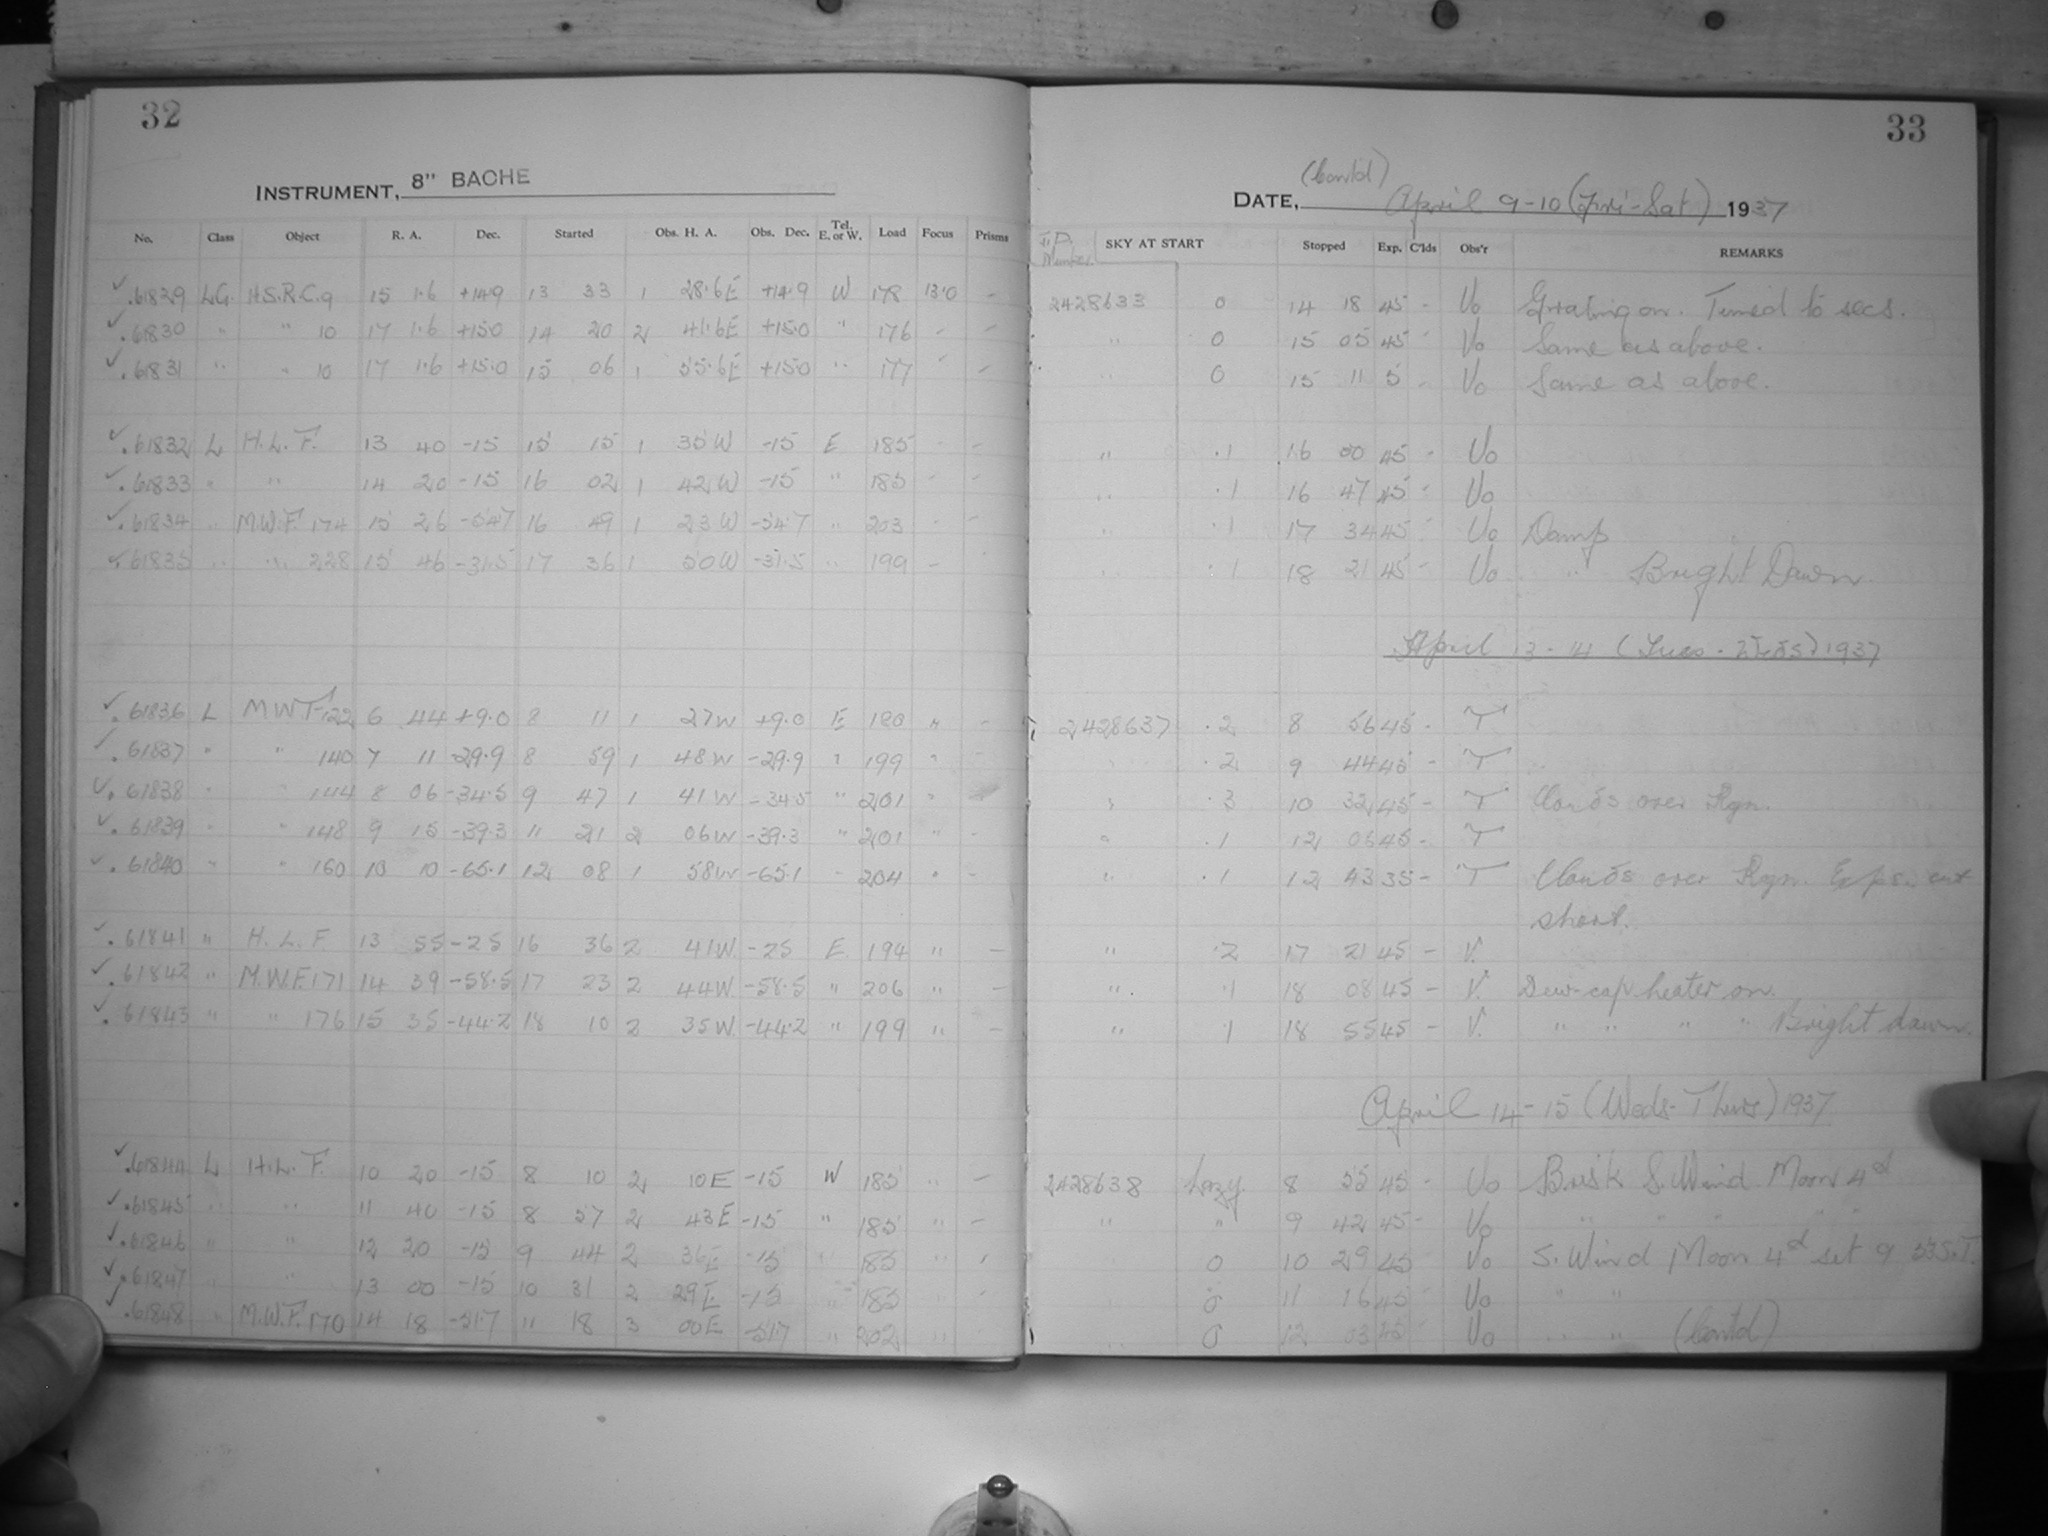 32
33
INSTRUMENT, 8" BACHE
(Cont'd)
DATE, April 9-10 (Fri-Sat) 1937
No. Class Object R. A. Dec. Started Obs. H. A. Obs. Dec. Tel. E. or W. Load Focus Prisms J.D. Number. SKY AT START Stopped Exp. C'lds Obs'r REMARKS
✓.61829 LG. H.S.R.C. 9 15 1.6 +14.9 13 33 1 28.6E +14.9 W 178 13.0 - 2428633 0 14 18 45 - Vo Grating on. Timed to secs.
✓.61830 " " 10 17 1.6 +15.0 14 20 2 41.6E +15.0 " 176 - - " 0 15 05 45 - Vo Same as above.
✓.61831 " " 10 17 1.6 +15.0 15 06 1 55.6E +15.0 " 177 - - " 0 15 11 5 - Vo Same as above.
✓.61832 L H.L.F. 13 40 -15 15 15 1 35W -15 E 185 - - " .1 16 00 45 - Vo
✓.61833 " " 14 20 -15 16 02 1 42W -15 " 185 - - " .1 16 47 45 - Vo
✓.61834 " M.W.F. 174 15 26 -54.7 16 49 1 23W -54.7 " 203 - - " .1 17 34 45 - Vo Damp
✓.61835 " " 228 15 46 -31.5 17 36 1 50W -31.5 " 199 - - " .1 18 21 45 - Vo " Bright Dawn.
April 13-14 (Tues - Weds) 1937
✓.61836 L MWF 122 6 44 +9.0 8 11 1 27W +9.0 E 180 " - 2428637 .2 8 56 45 - T
✓.61837 " " 140 7 11 -29.9 8 59 1 48W -29.9 " 199 " - " .2 9 44 45 - T
✓.61838 " " 144 8 06 -34.5 9 47 1 41W -34.5 " 201 " - " .3 10 32 45 - T Clouds over Rgn.
✓.61839 " " 148 9 15 -39.3 11 21 2 06W -39.3 " 201 " - " .1 12 06 45 - T
✓.61840 " " 160 10 10 -65.1 12 08 1 58W -65.1 " 204 " - " .1 12 43 35 - T Clouds over Rgn. Exps. cut
short.
✓.61841 " H.L.F. 13 55 -25 16 36 2 41W -25 E 194 " - " .2 17 21 45 - V.
✓.61842 " M.W.F. 171 14 39 -58.5 17 23 2 44W -58.5 " 206 " - " .1 18 08 45 - V. Dew-cap heater on.
✓.61843 " " 176 15 35 -44.2 18 10 2 35W -44.2 " 199 " - " .1 18 55 45 - V. " " " " Bright dawn.
April 14-15 (Weds-Thurs) 1937
✓.61844 L H.L.F. 10 20 -15 8 10 2 10E -15 W 185 " - 2428638 hazy 8 55 45 - Vo Brisk S. Wind Moon 4d
✓.61845 " " 11 40 -15 8 57 2 43E -15 " 185 " - " " 9 42 45 - Vo " " " " "
✓.61846 " " 12 20 -15 9 44 2 36E -15 " 185 " - 0 10 29 45 Vo S. Wind Moon 4d set 9 53 S.T.
✓.61847 " " 13 00 -15 10 31 2 29E -15 " 185 " - 0 11 16 45 Vo " "
✓.61848 " M.W.F. 170 14 18 -51.7 11 18 3 00E -51.7 " 202 " - " 0 12 03 45 Vo " " (Cont'd)